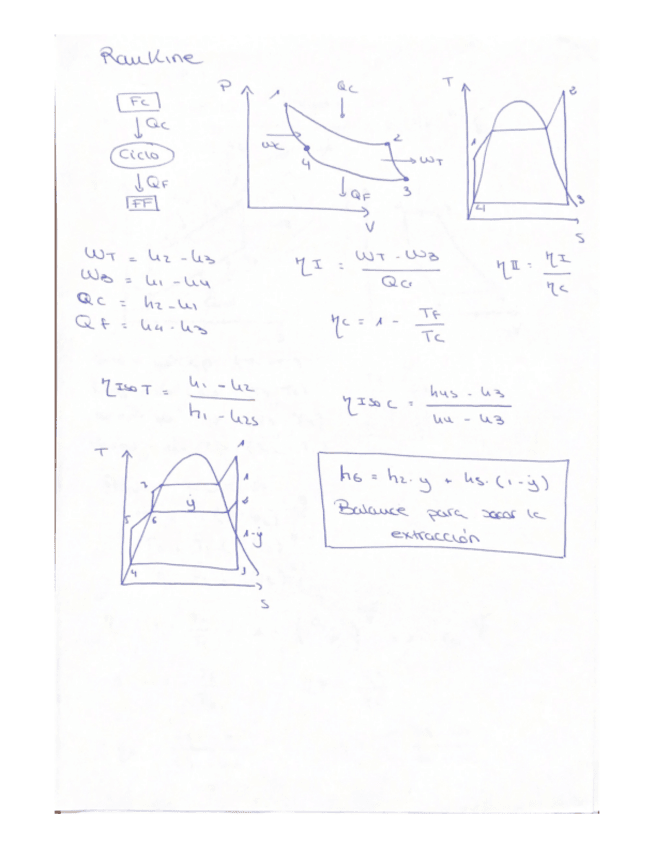 Rankine
FC
QC
Ciclo
QF
FF
P
1
QC
WC
4
2
WT
3
QF
V
T
1
2
3
4
S
WT = h2 - h3
WB = h1 - h4
QC = h2 - h1
QF = h4 - h3
ηI = WT - WB / QC
ηII = ηI / ηC
ηC = 1 - TF / TC
ηIso T = h1 - h2 / h1 - h2s
ηIso C = h4s - h3 / h4 - h3
T
1
7
1
ẏ
2
5
6
1-ẏ
4
3
S
h6 = h2 · y + h5 · (1 - ẏ)
Balance para sacar la
extracción